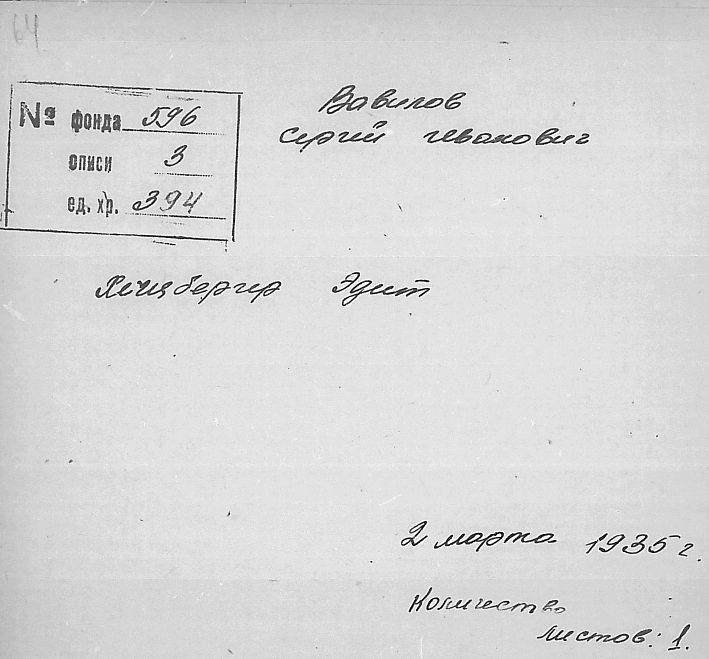 64
Вавилов
Сергей Иванович
№ фонда 596
описи 3
ед. хр. 394
Эдит
2 марта 1935 г.
Количество
листов: 1.